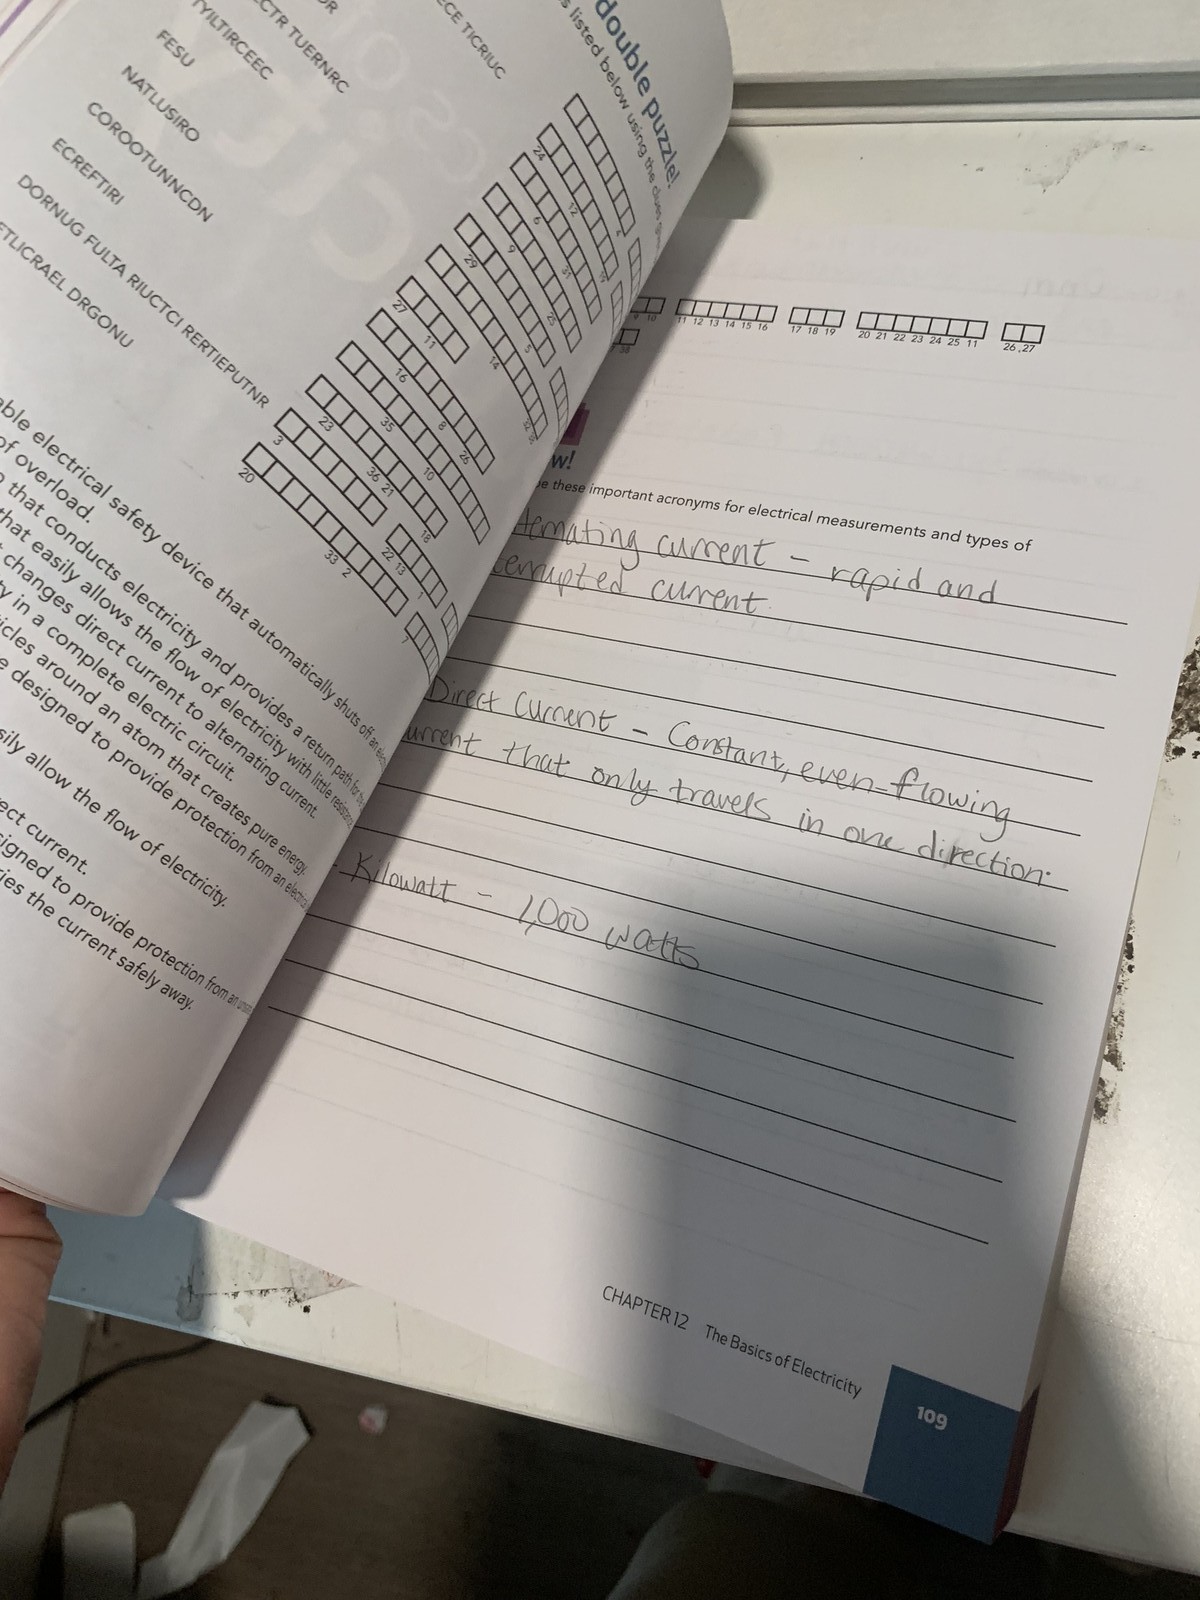 double puzzle!
listed below using the clues
ECE TICRIUC
ECTR TUERNRC
TYILTIRCEEC
FESU
NATLUSIRO
COROOTUNNCDN
ECREFTIRI
DORNUG FULTA RIUCTCI RERTIEPUTNR
ETLICRAEL DRGONU
24
12
6
31
19
9
29
25
5
27
11
14
32
16
8
26
35
10
23
36 21
18
3
22 13
20
33 2
7
able electrical safety device that automatically shuts off an
of overload.
that conducts electricity and provides a return path for
that easily allows the flow of electricity with little
changes direct current to alternating current.
in a complete electric circuit.
around an atom that creates pure energy.
designed to provide protection from an
allow the flow of electricity.
current.
designed to provide protection from an
the current safely away.
9 10 11 12 13 14 15 16 17 18 19 20 21 22 23 24 25 11 26 27
38
w!
these important acronyms for electrical measurements and types of
current – rapid and
current.
Direct Current – Constant, even-flowing
that only travels in one direction.
- Kilowatt – 1,000 watts
CHAPTER 12 The Basics of Electricity
109